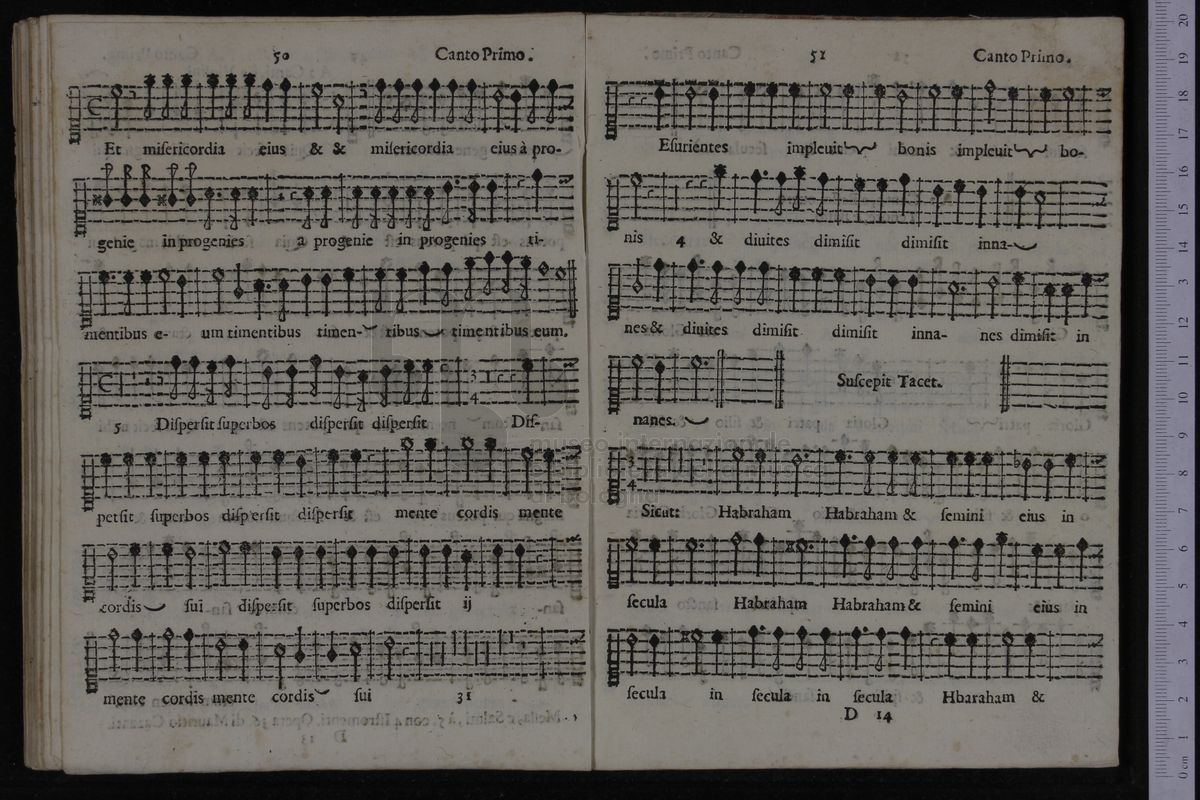 50 Canto Primo.
Et misericordia eius & & misericordia eius à pro-
genie in progenies a progenie in progenies ti-
mentibus e- um timentibus timen- tibus timentibus eum.
5 Dispersit superbos dispersit dispersit Dis-
persit superbos dispersit dispersit mente cordis mente
cordis sui dispersit superbos dispersit ij
mente cordis mente cordis sui 31
51 Canto Primo.
Esurientes impleuit bonis impleuit bo-
nis 4 & diuites dimisit dimisit inna-
nes & diuites dimisit dimisit inna- nes dimisit in
nanes. Suscepit Tacet.
Sicut: Habraham Habraham & semini eius in
secula Habraham Habraham & semini eius in
secula in secula in secula Hbaraham &
D 14
museo internazionale